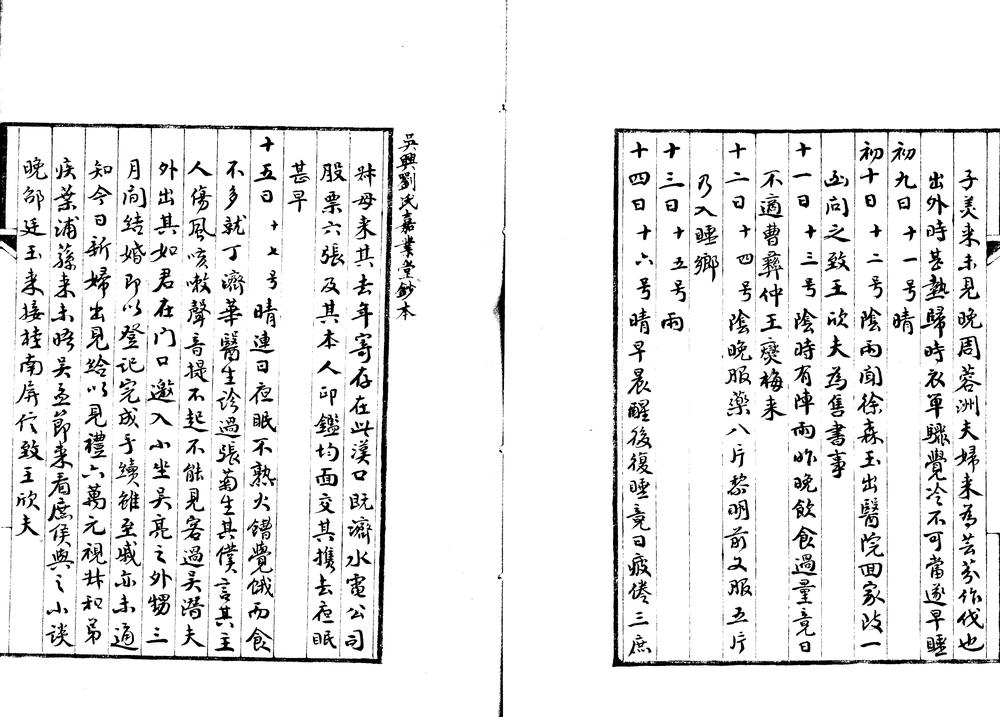 子美来未見晚周蓉洲夫婦来為芸芬作伐也
出外時甚熱歸時衣單驟覺冷不可當遂早睡
初九日 十一号晴
初十日 十二号陰雨聞徐森玉出醫院回家改一
函問之致王欣夫為售書事
十一日 十三号陰時有陣雨昨晚飲食過量竟日
不適曹彝仲王燮梅来
十二日 十四号陰晚服藥八片黎明前又服五片
乃入睡鄉
十三日 十五号雨
十四日 十六号晴早晨醒後復睡竟日疲倦三庶
吳興劉氏嘉業堂鈔本
母来其去年寄存在此漢口既濟水電公司
股票六張及其本人印鑑均面交其携去夜眠
甚早
十五日 十七号晴連日夜眠不熟火體覺餓而食
不多就丁濟華醫生診過張菊生其僕言其主
人傷風咳嗽聲音提不起不能見客過吳潛夫
外出其如君在门口邀入小坐吳亮之外甥三
月间結婚即以登记完成手續雖至戚亦未通
知今日新婦出見給以見禮六萬元視林和弟
疾葉浦蓀来未晤吳孟節来看庶侯與之小談
晚邰廷玉来接桂南屏信致王欣夫